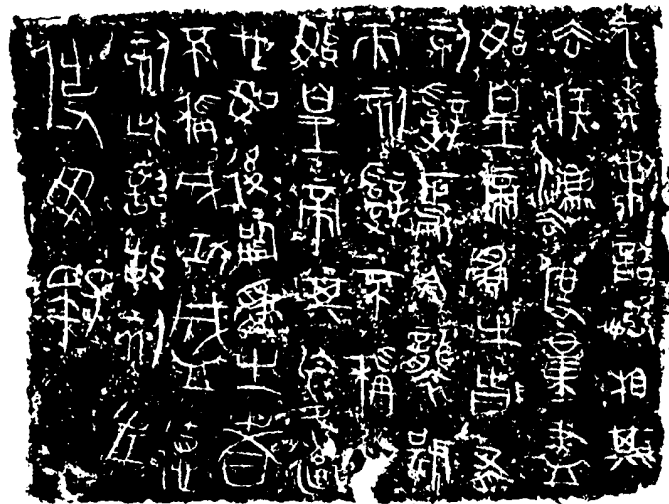 元年制詔丞相斯
去疾灋度量盡
始皇帝為之皆有
刻辭焉今襲號
而刻辭不稱
始皇帝其於久遠
也如後嗣為之者
不稱成功盛德
刻此詔故刻左
使毋疑